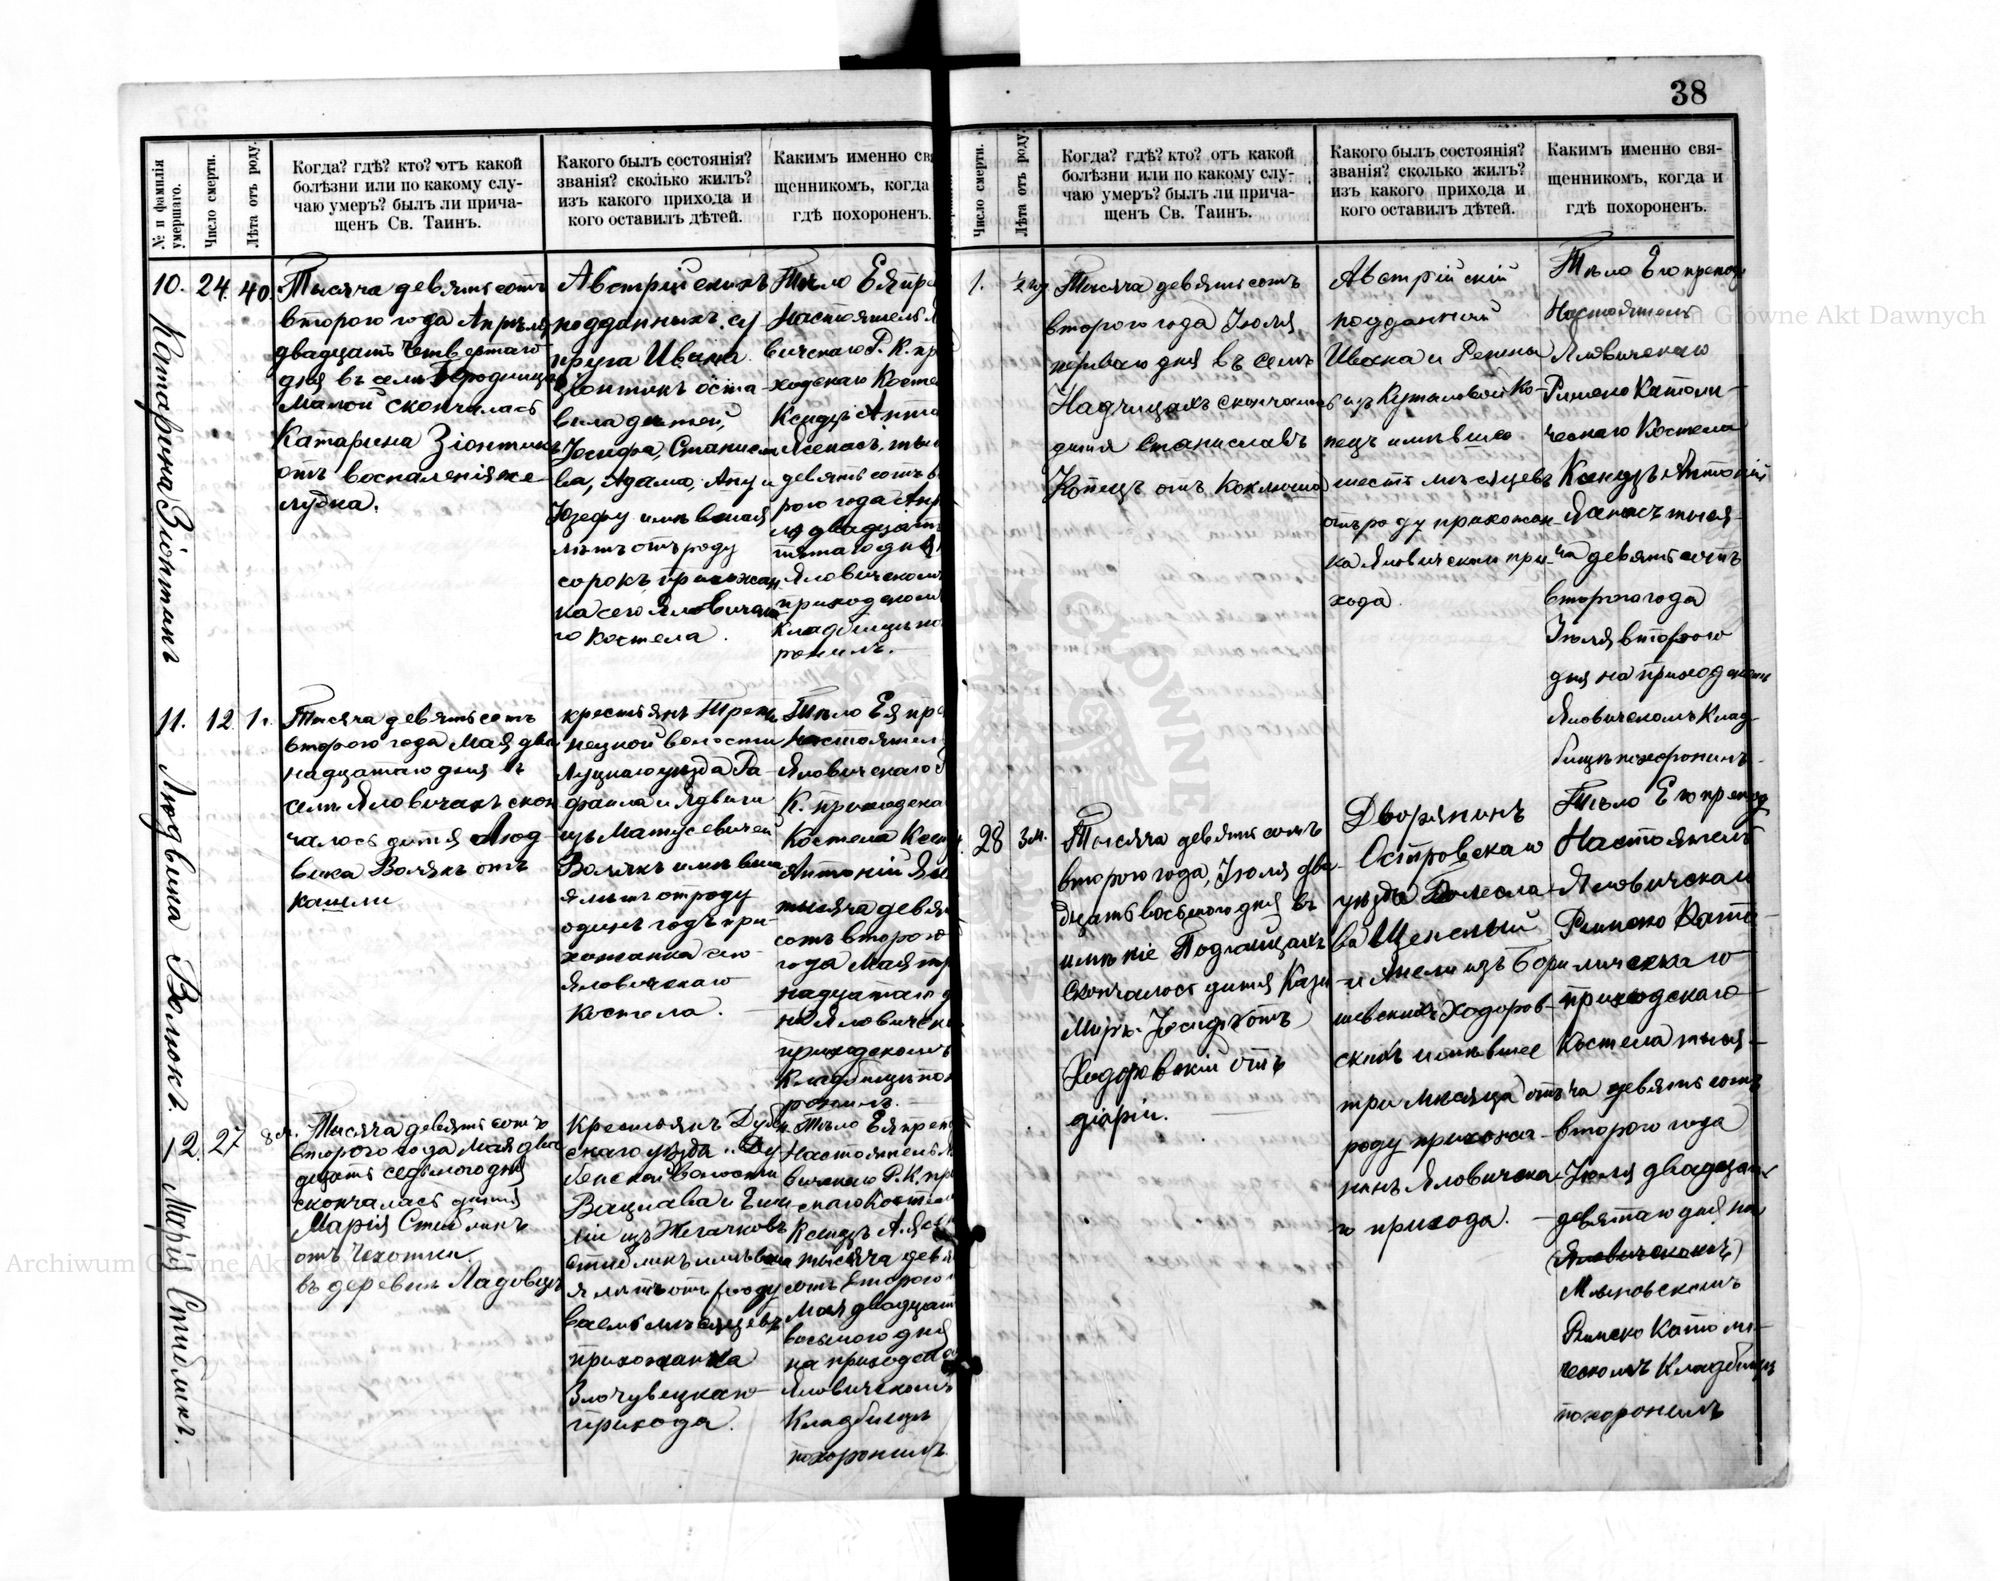 38
№ и фамилія умершаго.
Число смерти.
Лѣта отъ роду.
Когда? гдѣ? кто? отъ какой
болѣзни или по какому слу-
чаю умеръ? былъ ли прича-
щенъ Св. Таинъ.
Какого былъ состоянія?
званія? сколько жилъ?
изъ какого прихода и
кого оставилъ дѣтей.
Какимъ именно свя
щенникомъ, когда
гдѣ похороненъ.
10.
Катарина Зіонтикъ
24.
40.
Тысяча девятьсотъ
второго года Апрѣля
двадцать четвертаго
дня въ селѣ
Малой скончалась
Катарина Зіонтикъ
отъ воспаленія же-
лудка.
Австрійскихъ
подданныхъ, су
пруга Ивана
Зіонтикъ оста-
вила дѣтей,
Іосифа, Станисла
ва, Адама,
Юзефу имѣвшая
лѣтъ отъ роду
сорокъ, прихожан
ка сего Яловичска
го Костела.
Тѣло Ея пре
Настоятель Я
вичскаго Р. К. пр
ходскаго Косте
Ксендзъ Анто
тыс
девятьсотъ в
рого года Апр
ля двадцать
пятаго дня
Яловичскомъ
приходском
Кладбищѣ по
ронилъ.
11.
Людвика Волюкъ.
12
1 г.
Тысяча девятьсотъ
второго года Мая две
надцатаго дня въ
селѣ Яловичахъ скон
чалось дитя Люд
вика Волякъ отъ
кашля
крестьянъ
волости
Луцкаго уѣзда Ра-
фаила и Ядвиги
изъ Матусевичей
Волякъ имѣвша
я лѣтъ отроду
одинъ годъ при
хожанка сего
Яловичскаго
Костела.
Тѣло Ея пре
Настоятель
Яловичскаго Р
К. приходска
Костела Ксен
Антоній
тысяча девят
сотъ второго
года Мая тр
надцатаго д
на Яловичско
приходскомъ
Кладбищѣ пох
ронилъ.
12.
Марія Стибликъ.
27
8 м.
Тысяча девятьсотъ
второго года Мая два
дцать седьмого дня
скончалась дитя
Марія Стибликъ
отъ чахотки
въ деревнѣ Ладовцахъ
Крестьянъ Дубе
скаго уѣзда Ду
бенской волости
Вацлава и Еми
ліи изъ
Стибликъ имѣвша
я лѣтъ отъ роду
восемь мѣсяцевъ
прихожанка
прихода.
Тѣло Ея преп
Настоятель Я
вичскаго Р. К. пр
скаго Костела
Ксендзъ А.
тысяча девя
сотъ второго
Мая двадцать
восьмого дня
на приходско
Яловичскомъ
Кладбищѣ
похоронилъ.
Число смерти.
Лѣта отъ роду.
Когда? гдѣ? кто? отъ какой
болѣзни или по какому слу-
чаю умеръ? былъ ли прича-
щенъ Св. Таинъ.
Какого былъ состоянія?
званія? сколько жилъ?
изъ какого прихода и
кого оставилъ дѣтей.
Какимъ именно свя-
щенникомъ, когда и
гдѣ похороненъ.
1.
½ г.
Тысяча девятьсотъ
второго года Іюля,
перваго дня въ селѣ
Надчицахъ скончалось
дитя Станиславъ
Копецъ отъ Коклюша
Австрійскій
подданный
Ивана и
изъ Ко-
пецъ имѣвшее
шесть мѣсяцевъ
отъ роду прихожан-
ка Яловичскаго при-
хода.
Тѣло Его препод
Настоятель
Яловичскаго
Римско Католи-
ческаго Костела
Ксендзъ Антоній
тыся-
ча девятьсотъ
второго года
Іюля второго
дня на приходскомъ
Яловичскомъ Клад-
бищѣ похоронилъ.
28
3 м.
Тысяча девятьсотъ
второго года, Іюля два-
дцать восьмого дня въ
имѣніе Подгайцахъ
скончалось дитя Кази
миръ-Іосифъ
Ходоровскій отъ
діаріи.
Дворянинъ
Островскаго
уѣзда Болесла-
ва Щенсный
и Анели изъ Бори
шевскихъ Ходоров-
скихъ имѣвшее
три мѣсяца отъ
роду прихожа-
нинъ Яловичска-
го прихода.
Тѣло Его препод
Настоятель
Яловичскаго
Римско Като-
лическаго
приходскаго
Костела тыся-
ча девятьсотъ
второго года
Іюля двадцать
девятаго дня на
(Яловичскомъ)
Млыновскомъ
Римско Католи-
ческомъ Кладбищѣ
похоронилъ
Archiwum Główne Akt Dawnych
Archiwum Główne Akt Dawnych